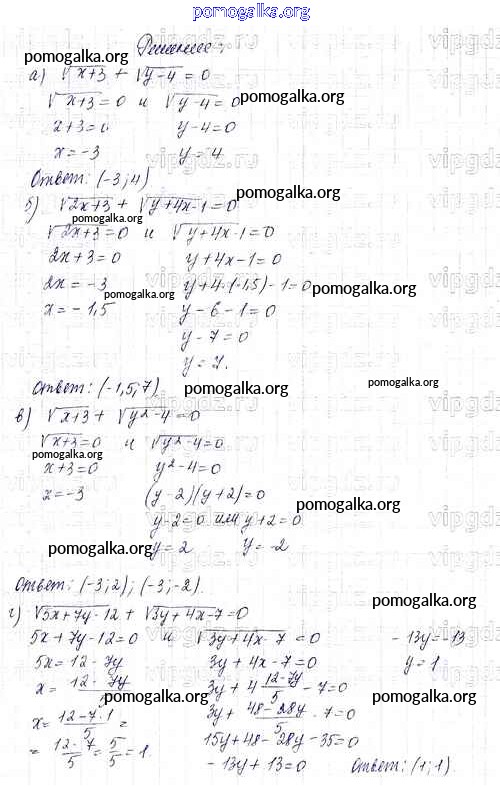 pomogalka.org
Решение:
pomogalka.org
а) √x+3 + √y-4 = 0
√x+3 = 0 и √y-4 = 0
pomogalka.org
x+3=0 y-4=0
x=-3 y=4
vipgdz.ru
Ответ: (-3;4)
pomogalka.org
б) √2x+3 + √y+4x-1=0
pomogalka.org
√2x+3=0 и √y+4x-1=0
2x+3=0 y+4x-1=0
2x=-3 y+4·(-1,5)-1=0
pomogalka.org pomogalka.org
x=-1,5 y-6-1=0
y-7=0
y=7.
Ответ: (-1,5;7)
pomogalka.org pomogalka.org
в) √x+3 + √y²-4=0
√x+3=0 и √y²-4=0
pomogalka.org
x+3=0 y²-4=0
x=-3 (y-2)(y+2)=0
pomogalka.org
y-2=0 или y+2=0
pomogalka.org y=2 y=-2
Ответ: (-3;2); (-3;-2).
pomogalka.org
г) √5x+7y-12 + √3y+4x-7=0
5x+7y-12=0 и √3y+4x-7=0 -13y=-13
5x=12-7y 3y+4x-7=0 y=1
x= 12-7y/5 3y+4 12-7y/5 -7=0
pomogalka.org pomogalka.org pomogalka.org
x= 12-7·1/5 = 3y+ 48-28y/5 -7=0
= 12-7/5 = 5/5 =1. 15y+48-28y-35=0
-13y+13=0 Ответ: (1;1).